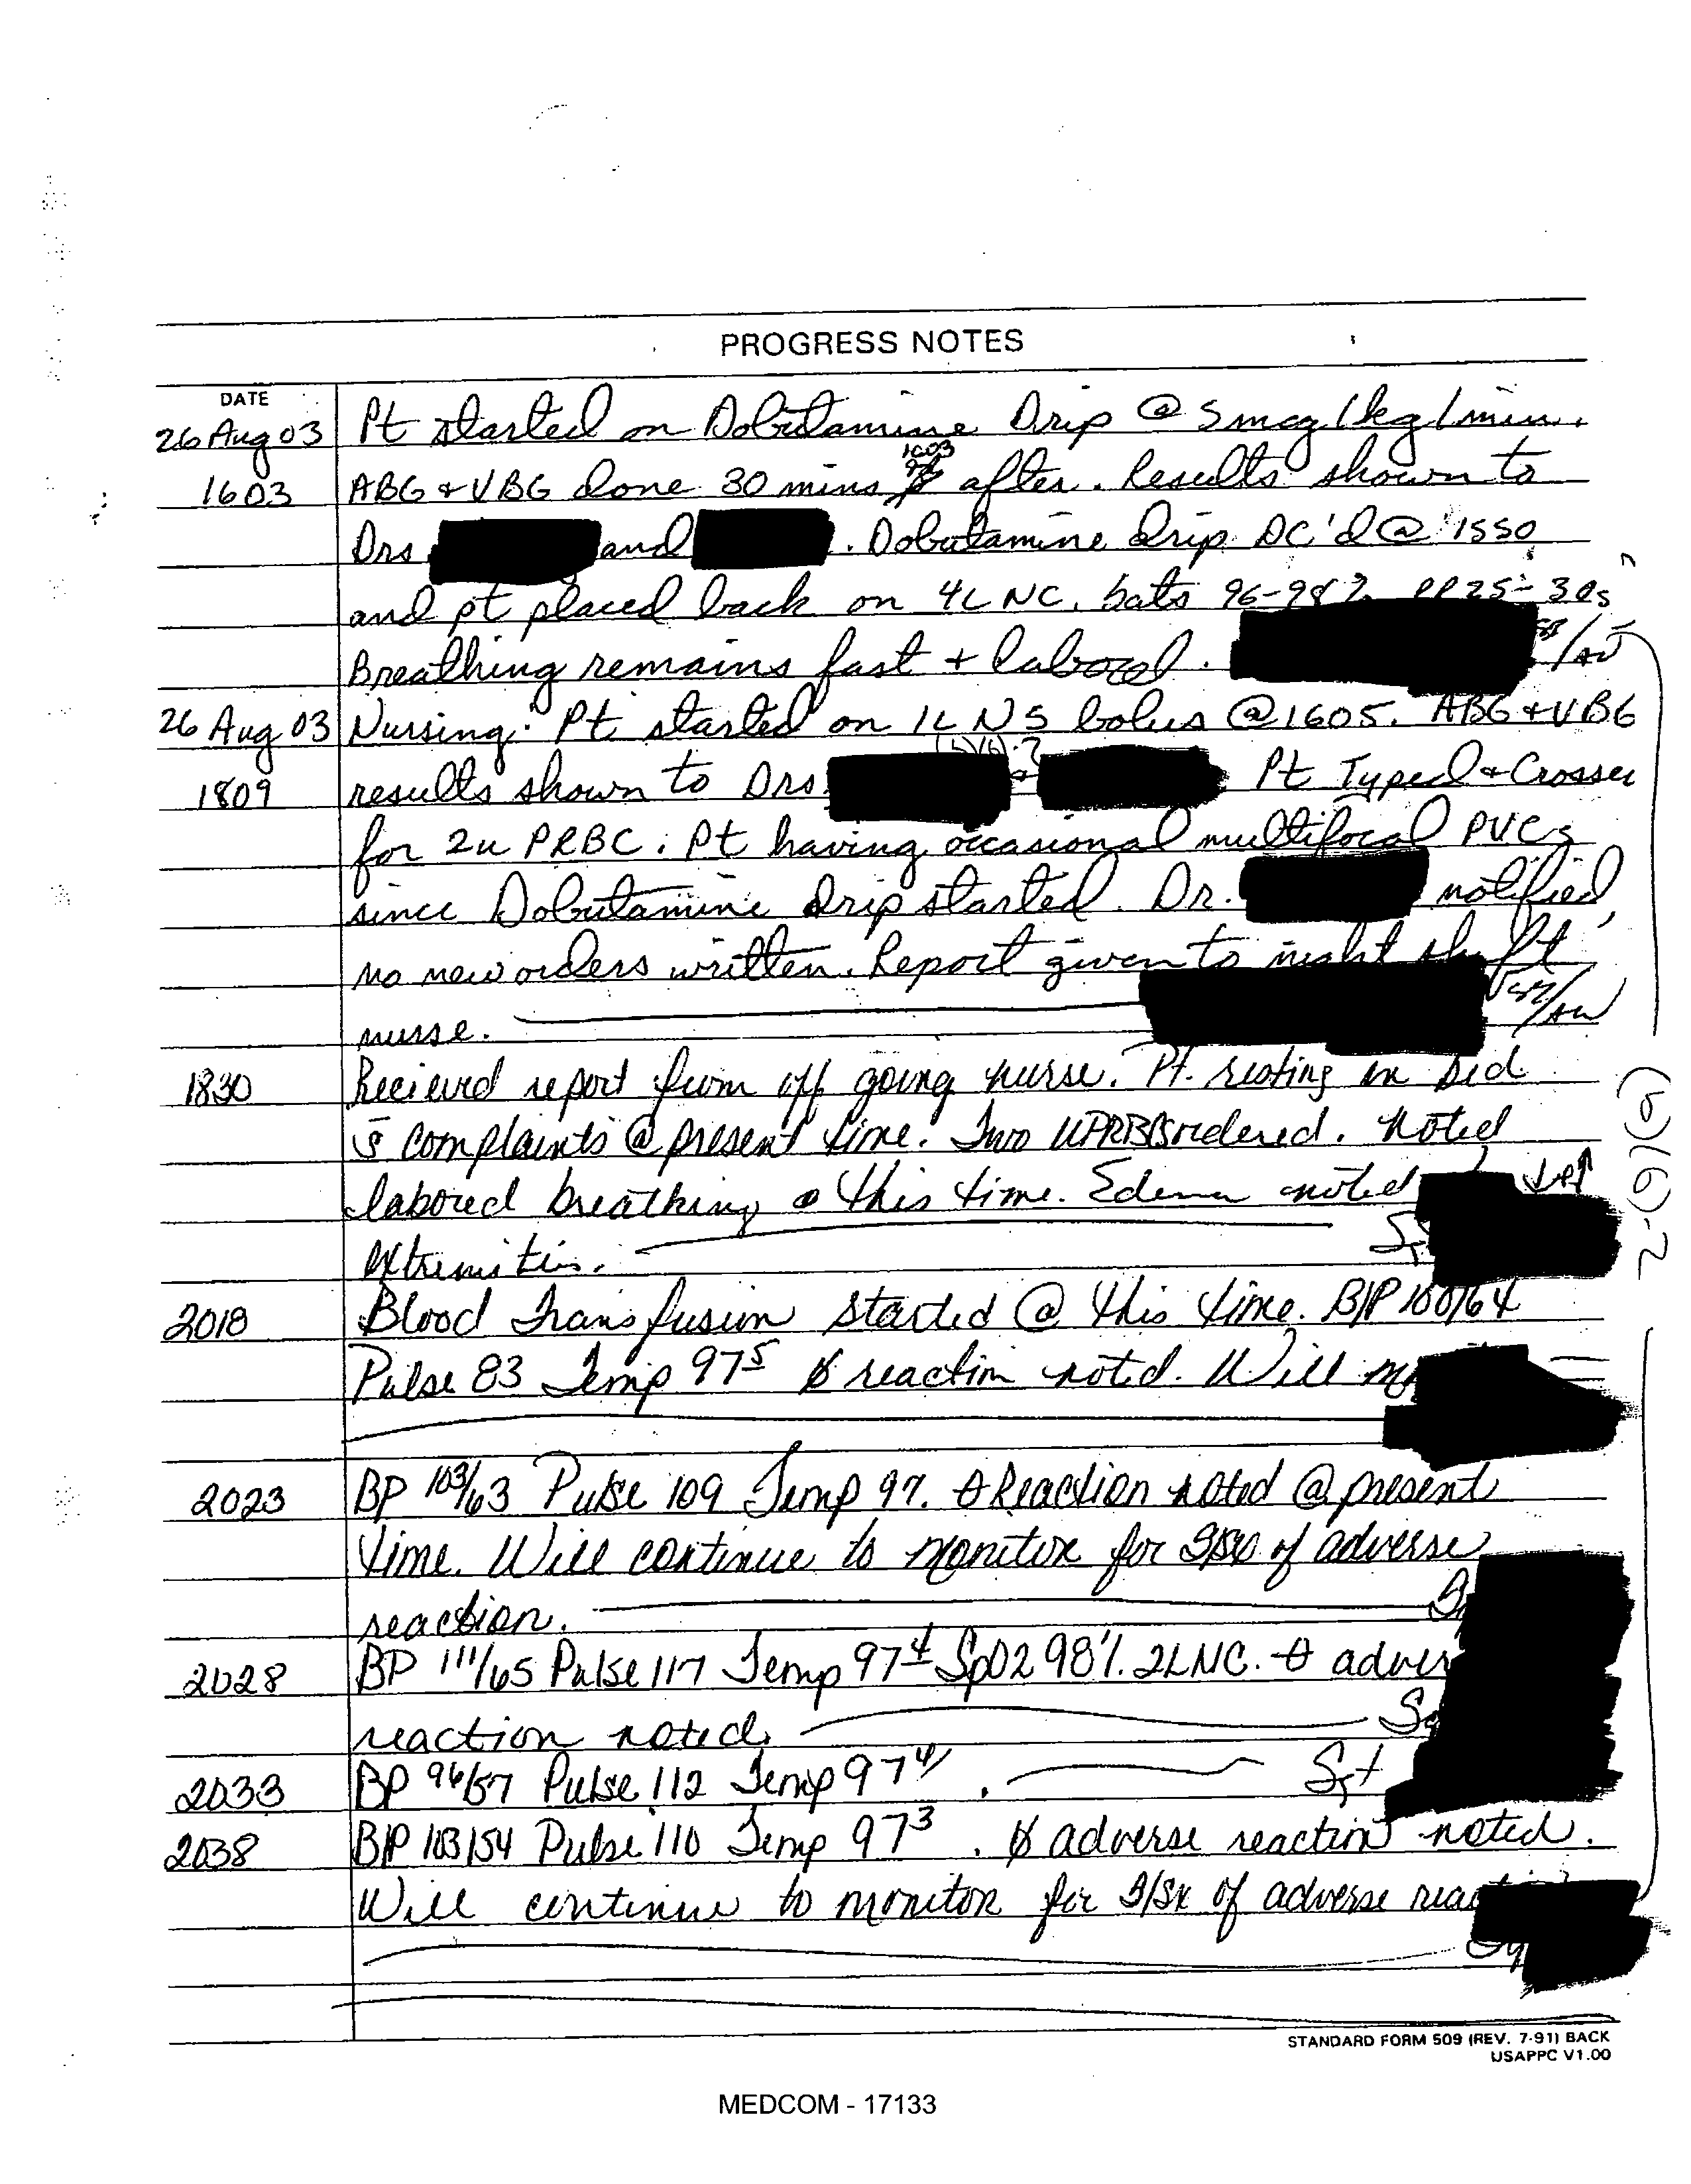 PROGRESS NOTES
DATE
26 Aug 03 Pt started on Dobutamine Drip @ 5mcg/kg/min.
1603 ABG + VBG done 30 mins after. Results shown to
1603
Drs and . Dobutamine drip DC'd @ 1550
and pt placed back on 4L NC. Sats 96-98% RR 25-30s
Breathing remains fast + labored.
26 Aug 03 Nursing: Pt started on 1L NS bolus @ 1605. ABG + VBG
1809 results shown to Drs Pt Typed + Crossed
for 2u PRBC. Pt having occasional multifocal PVCs
since Dobutamine drip started. Dr. notified
no new orders written. Report given to night shift
nurse.
1830 Recieved report from off going nurse. Pt. resting in bed
s̄ complaints @ present time. Two UPRBCs ordered. Noted
labored breathing @ this time. Edema noted
extremities.
2018 Blood Transfusion started @ this time. B/P 100/64
Pulse 83 Temp 97⁵ Ø reaction noted. Will
2023 BP 103/63 Pulse 109 Temp 97. Ø Reaction noted @ present
time. Will continue to monitor for S/Sx of adverse
reaction.
2028 BP 111/65 Pulse 117 Temp 97⁴ SpO2 98% 2L NC. Ø adver
reaction noted.
2033 BP 96/57 Pulse 112 Temp 97⁴. Sgt
2038 B/P 103/54 Pulse 110 Temp 97³. Ø adverse reaction noted.
Will continue to monitor for S/Sx of adverse reac
(b)(6)-2
STANDARD FORM 509 (REV. 7-91) BACK
USAPPC V1.00
MEDCOM - 17133